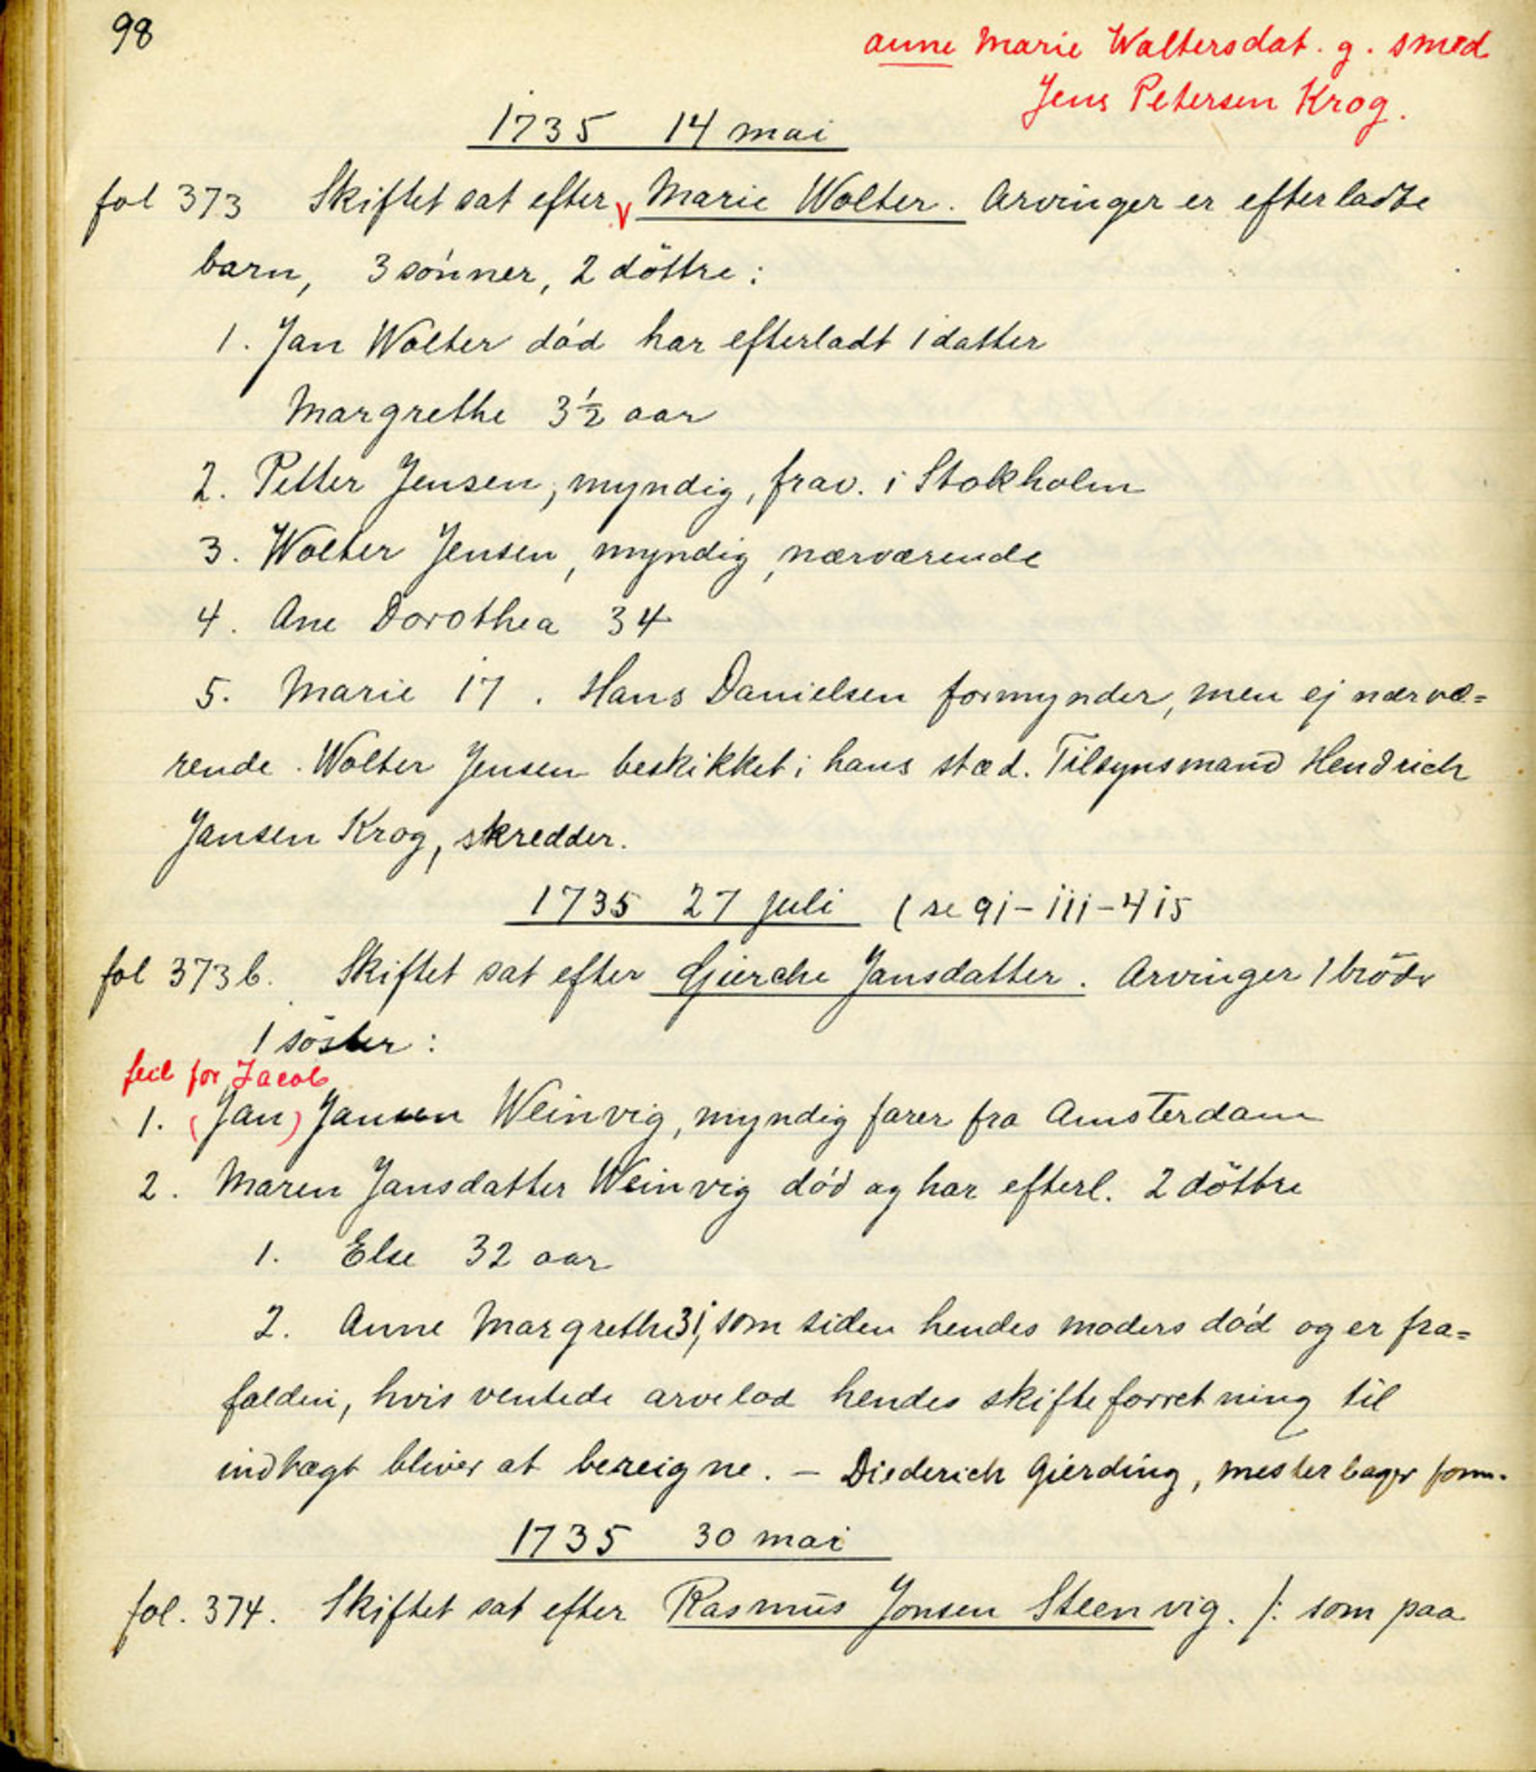 98
anne Marie Waltersdat. g. smed
Jens Petersen Krog.
1735 14 mai
fol 373 Skiftet sat efter v Marie Wolter. Arvinger er efterladte
barn, 3 sønner, 2 döttre :
1. Jan Wolter død har efterladt 1 datter
Margrethe 3½ aar
2. Petter Jensen, myndig, frav. i Stokholm
3. Wolter Jensen, myndig, nærværende
4. Ane Dorothea 34
5. Marie 17. Hans Danielsen formynder, men ej nærvæ=
rende. Wolter Jensen beskikket i hans stæd. Tilsynsmand Hendrich
Jansen Krog, skredder.
1735 27 juli (se 91-111-415
fol 373 b. Skiftet sat efter Gierche Jansdatter. Arvinger 1 broder
1 söster :
feil for Jacob
1. (Jan) Jansen Weinvig, myndig farer fra Amsterdam
2. Maren Jansdatter Weinvig død og har efterl. 2 döttre
1. Else 32 aar
2. Anne Margrethe 31, som siden hendes moders død og er fra=
falden, hvis ventede arvelod hendes skifteforretning til
indtægt bliver at bereigne. - Diederich Gierding, mester bager form.
1735 30 mai
fol. 374. Skiftet sat efter Rasmus Jonsen Steenvig. /: som paa